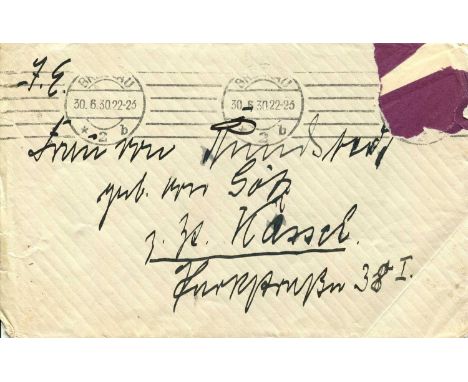 J. E.
BRESLAU
30.6.30.22-23
* 2 b
BRESLAU
30.6.30.22-23
* 2 b
Frau von Rundstedt
geb. von Götz
z. Zt. Kassel.
Parkstraße 38 I.